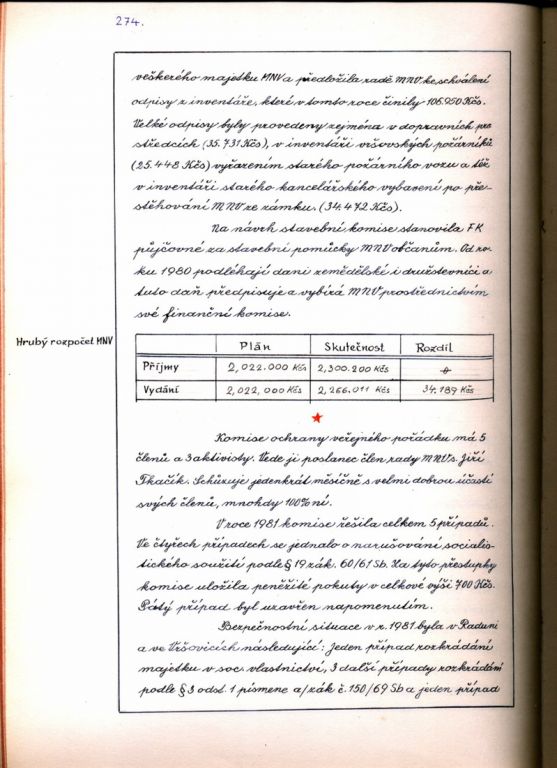 274.
veškerého majetku MNV a předložila radě MNV ke schválení
odpisy z inventáře, které v tomto roce činily 106.950 Kčs.
Velké odpisy byly provedeny zejména v dopravních pro
středcích (35.731 Kčs), v inventáři vršovských požárníků
(25.448 Kčs) vyřazením starého požárního vozu a též
v inventáři starého kancelářského vybavení po pře-
stěhování MNV ze zámku. (34.472 Kčs).
Na návrh stavební komise stanovila FK
půjčovné za stavební pomůcky MNV občanům. Od ro-
ku 1980 podléhají dani zemědělské i družstevníci a
tuto daň předpisuje a vybírá MNV prostřednictvím
své finanční komise.
Hrubý rozpočet MNV
Plán Skutečnost Rozdíl
Příjmy 2,022.000 Kčs 2,300.200 Kčs
Vydání 2,022,000 Kčs 2,256.011 Kčs 34.189 Kčs
Komise ochrany veřejného pořádku má 5
členů a 3 aktivisty. Vede ji poslanec člen rady MNV s. Jiří
Tkačík. Schůzuje jedenkrát měsíčně s velmi dobrou účastí
svých členů, mnohdy 100% ní.
V roce 1981 komise řešila celkem 5 případů.
Ve čtyřech případech se jednalo o narušování socialis-
tického soužití podle § 19 zák. 60/61 Sb. Za tyto přestupky
komise uložila peněžité pokuty v celkové výši 700 Kčs.
Pátý případ byl uzavřen napomenutím.
Bezpečnostní situace v r. 1981 byla v Raduni
a ve Vršovicích následující: Jeden případ rozkrádání
majetku v soc. vlastnictví, 3 další případy rozkrádání
podle § 3 odst. 1 písmene a/zák č. 150/69 Sb a jeden případ